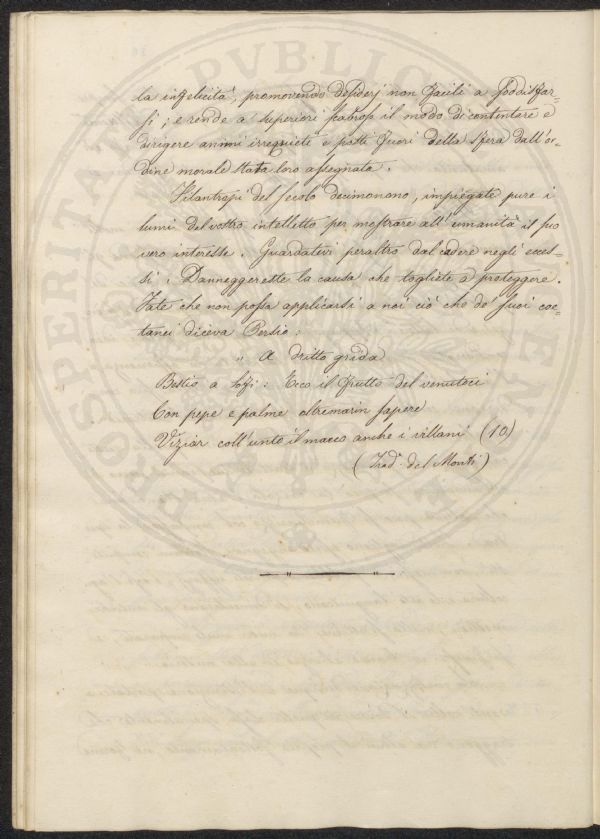 la infelicità, promovendo desiderj non facili a soddisfar-
si; e rende a' superiori scabroso il modo di contentare e
dirigere animi irrequieti e posti fuori della sfera dall'or-
dine morale stata loro assegnata.
Filantropi del secolo decimonono, impiegate pure i
lumi del vostro intelletto per mostrare all'umanità il suo
vero interesse. Guardatevi peraltro dal cadere negli ecces-
si. Danneggereste la causa che togliete a proteggere.
Fate che non possa applicarsi a noi ciò che de' suoi coe-
tanei diceva Persio:
" A dritto grida
Bestio a' sofi: Ecco il frutto del venutoci
Con pepe e palme oltremarin sapere
Viziar coll'unto il macco anche i villani (10)
(Trad. del Monti)
PROSPERITATI PVBLICAE